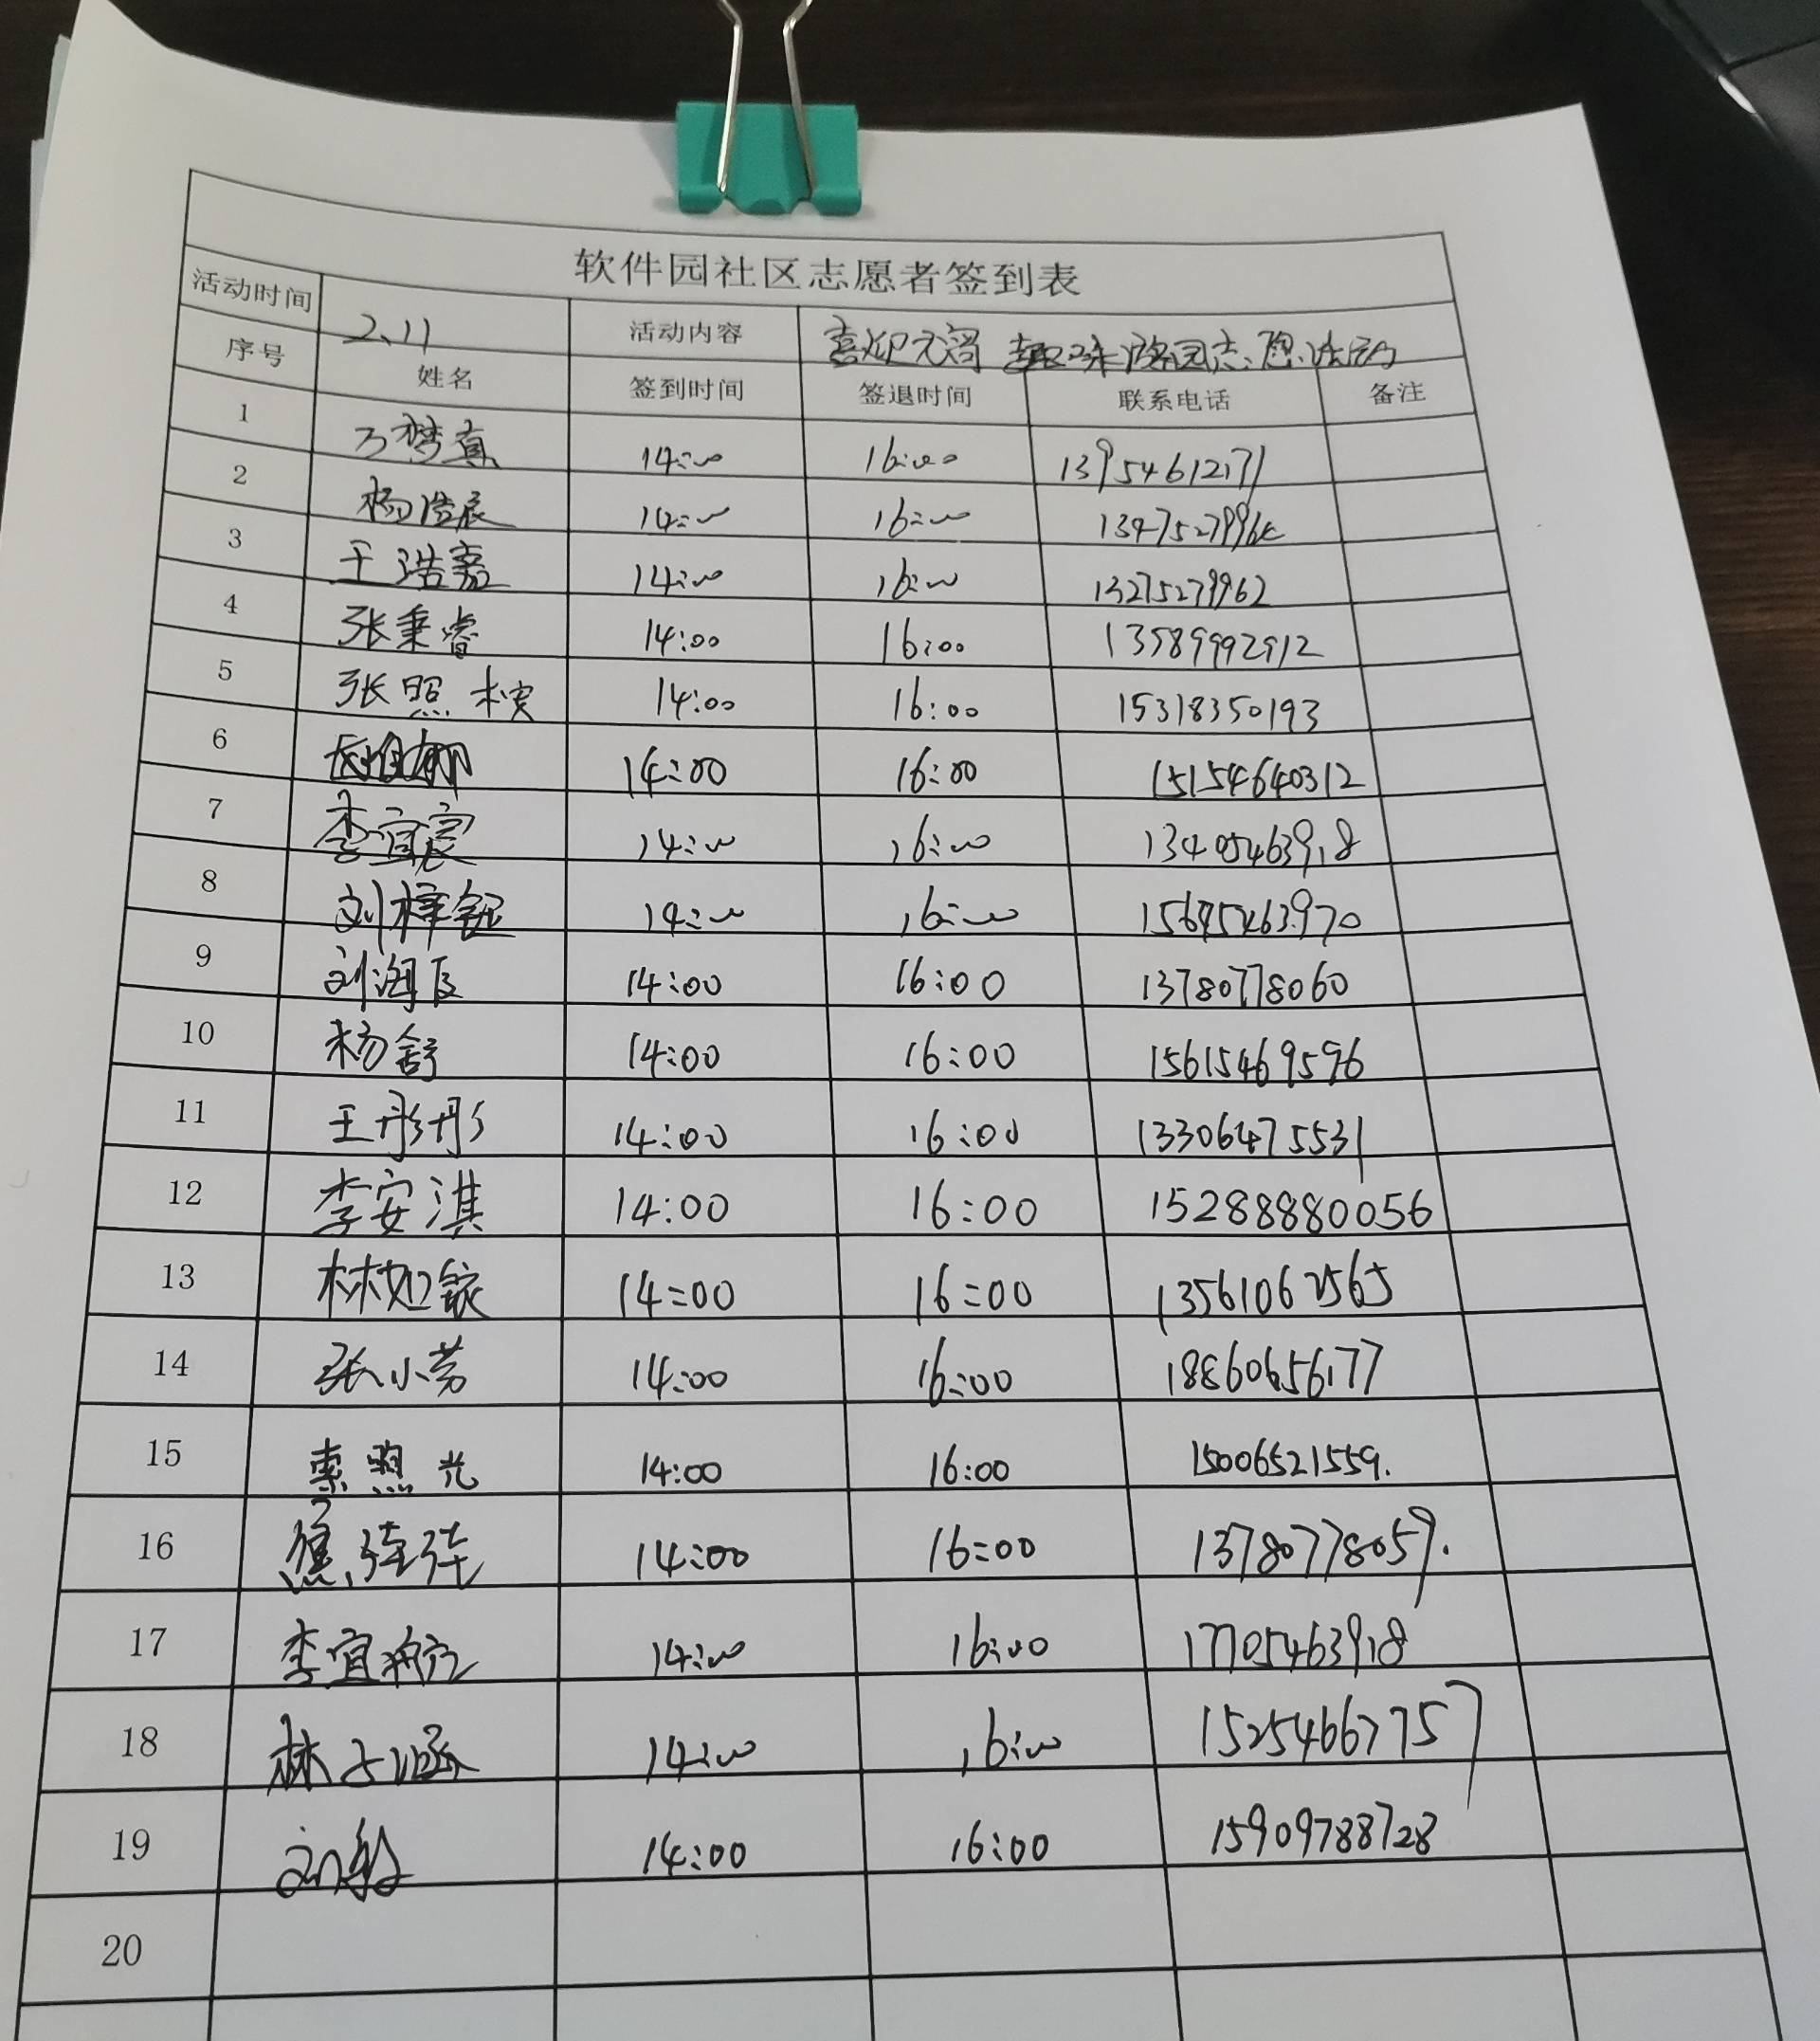 软件园社区志愿者签到表
活动时间 2.11 活动内容 喜迎元宵 趣味游园志愿活动
序号 姓名 签到时间 签退时间 联系电话 备注
1 万梦真 14:00 16:00 13954612171
2 杨浩辰 14:00 16:00
3 王浩嘉 14:00 16:00 13275279962
4 张秉睿 14:00 16:00 13589992912
5 张照 14:00 16:00 15318350193
6 14:00 16:00 15154640312
7 李宜宸 14:00 16:00 13405463918
8 刘梓钰 14:00 16:00
9 刘海辰 14:00 16:00 13780778060
10 杨舒 14:00 16:00 15615469596
11 王彤彤 14:00 16:00 13306475531
12 李安淇 14:00 16:00 15288880056
13 林如 14:00 16:00 13561062565
14 张小芳 14:00 16:00 18860656177
15 索照光 14:00 16:00 15006521559.
16 14:00 16:00 13780778059.
17 李宜 14:00 16:00 17705463918
18 林子涵 14:00 16:00 15254667757
19 刘 14:00 16:00 15909788728
20